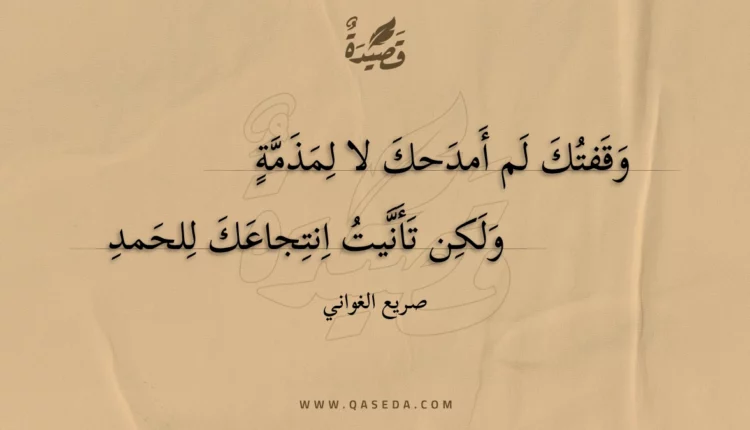 قَصِيدَةٌ
وَقَفتُكَ لَم أَمدَحكَ لا لِمَذَمَّةٍ
وَلَكِن تَأَنَّيتُ اِنتِجاعَكَ لِلحَمدِ
صريع الغواني
WWW.QASEDA.COM